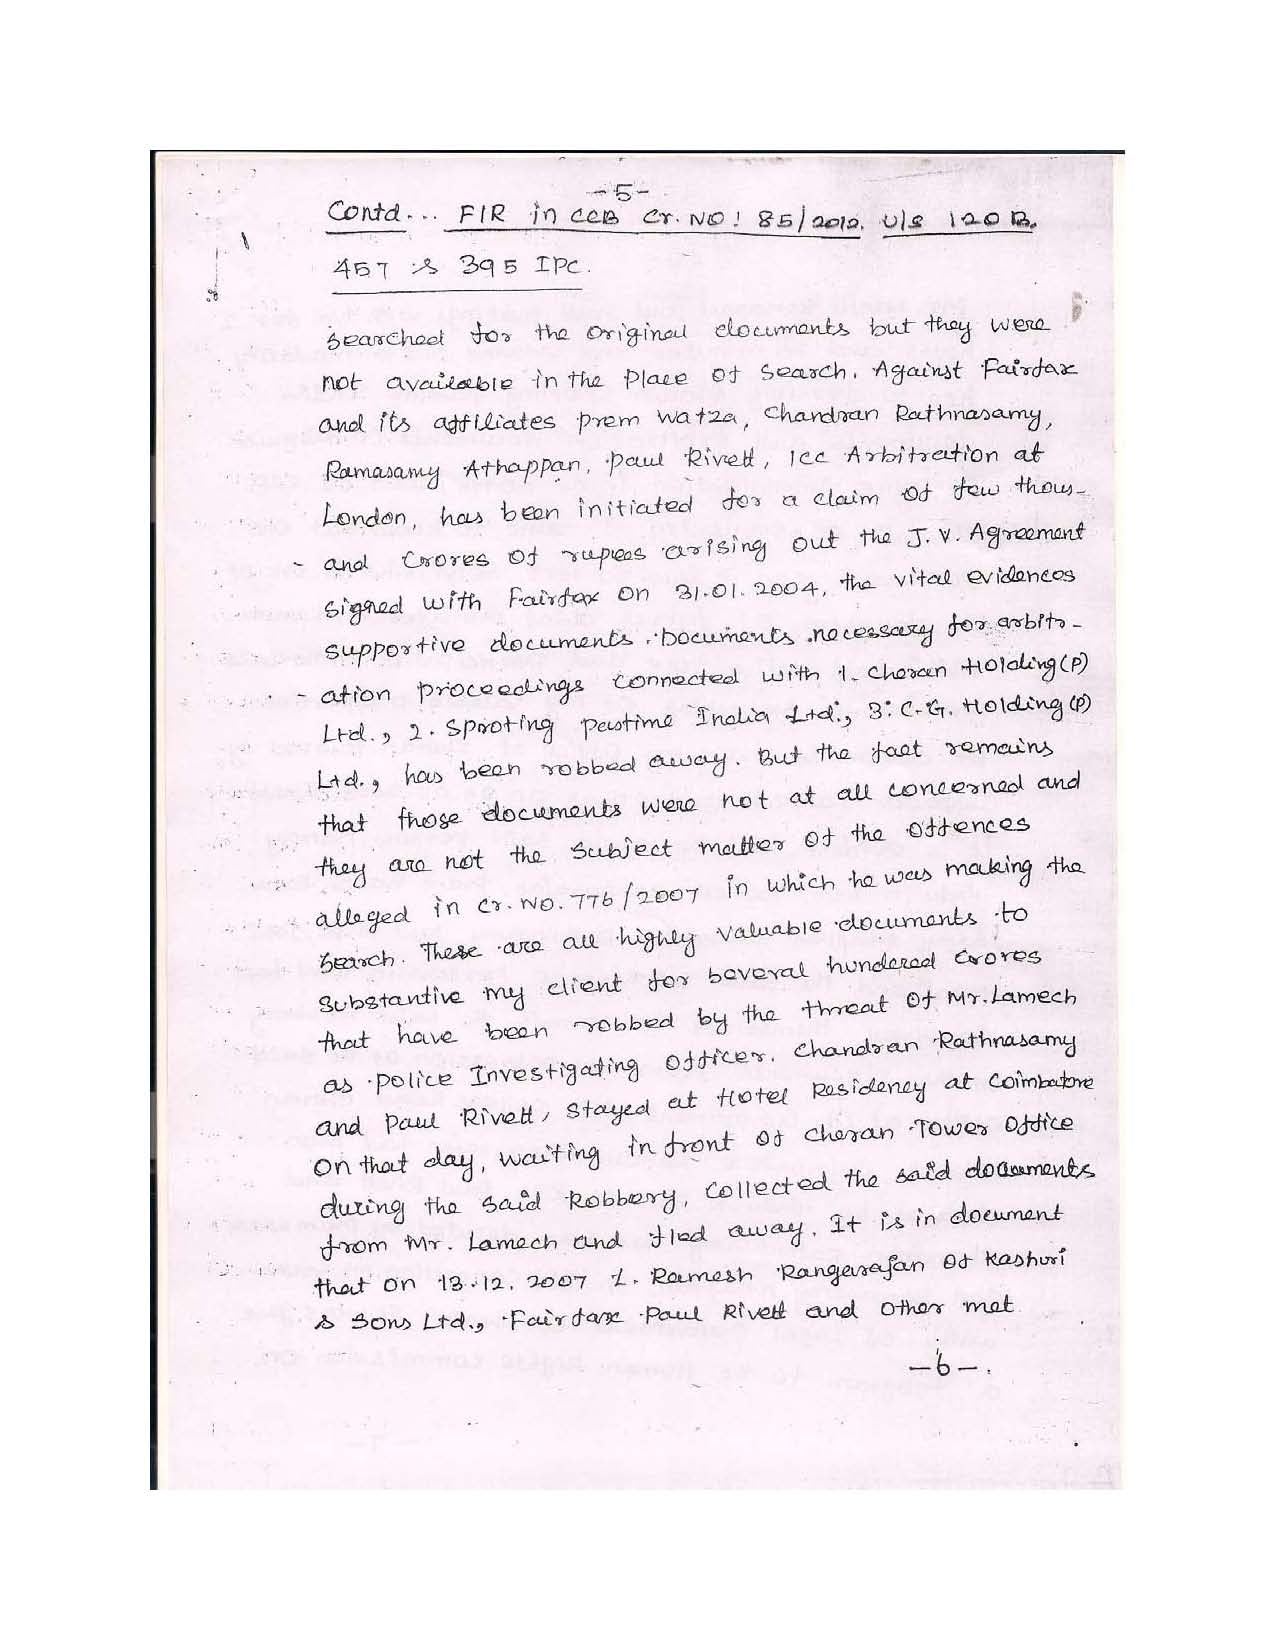 -5-
Contd... FIR in CCB Cr. NO: 85/2012. U/s 120 B.
457 & 395 IPC.
Searched for the Original documents but they were
not available in the Place of Search. Against Fairfax
and its affiliates Prem Watza, Chandran Rathnasamy,
Ramasamy Athappan, Paul Rivett, ICC Arbitration at
London, has been initiated for a claim of few thous-
- and Crores of rupees arising out the J. V. Agreement
Signed with Fairfax on 31.01.2004, the vital evidences
supportive documents. Documents necessary for arbitr-
- ation proceedings connected with 1. Cheran Holding (P)
Ltd., 2. Sproting pastime India Ltd., 3. C.G. Holding (P)
Ltd., has been robbed away. But the fact remains
that those documents were not at all concerned and
they are not the Subject matter of the offences
alleged in Cr. No. 776/2007 in which he was making the
Search. These are all highly valuable documents to
Substantive my client for several hundered Crores
that have been robbed by the threat of Mr. Lamech
as police Investigating Officer. Chandran Rathnasamy
and Paul Rivett, Stayed at Hotel Residency at Coimbatore
on that day, waiting in front of Cheran Tower Office
during the said Robbery, Collected the said documents
from Mr. Lamech and fled away. It is in document
that on 13.12.2007 1. Ramesh Rangarajan of Kashuri
& Sons Ltd., Fairfax Paul Rivett and other met
-6-.